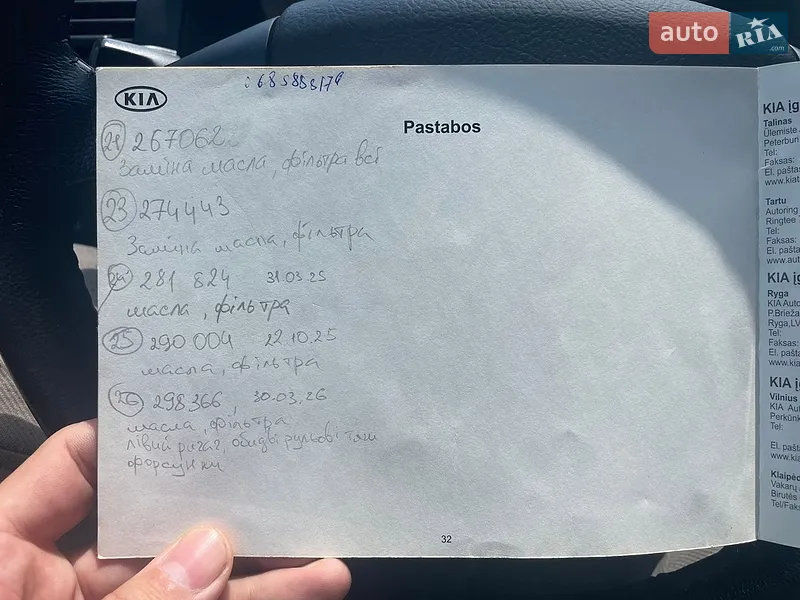 auto RIA .com
KIA
Pastabos
267062
Заміна масла, фільтра всі
23 274443
Заміна масла, фільтра
281 824 31.03.25
масла, фільтра
25 290 004 22.10.25
масла, фільтра
26 298366, 30.03.26
масла, фільтра
лівий ричаг, обидві рульові тяги
форсунки
32
KIA įg
Talinas
Ülemiste
Peterburi
Tel:
Faksas:
El. pašta
www.kiat
Tartu
Autoring
Ringtee
Tel:
Faksas:
El. pašta
www.aut
KIA įg
Ryga
KIA Auto
P.Brieža
Ryga,LV
Tel:
Faksas:
El. pašt
www.kia
KIA įg
Vilnius
KIA Aut
Perkūnk
Tel:
El. pašt
www.kia
Klaipėd
Vakarų
Birutės
Tel/Faks